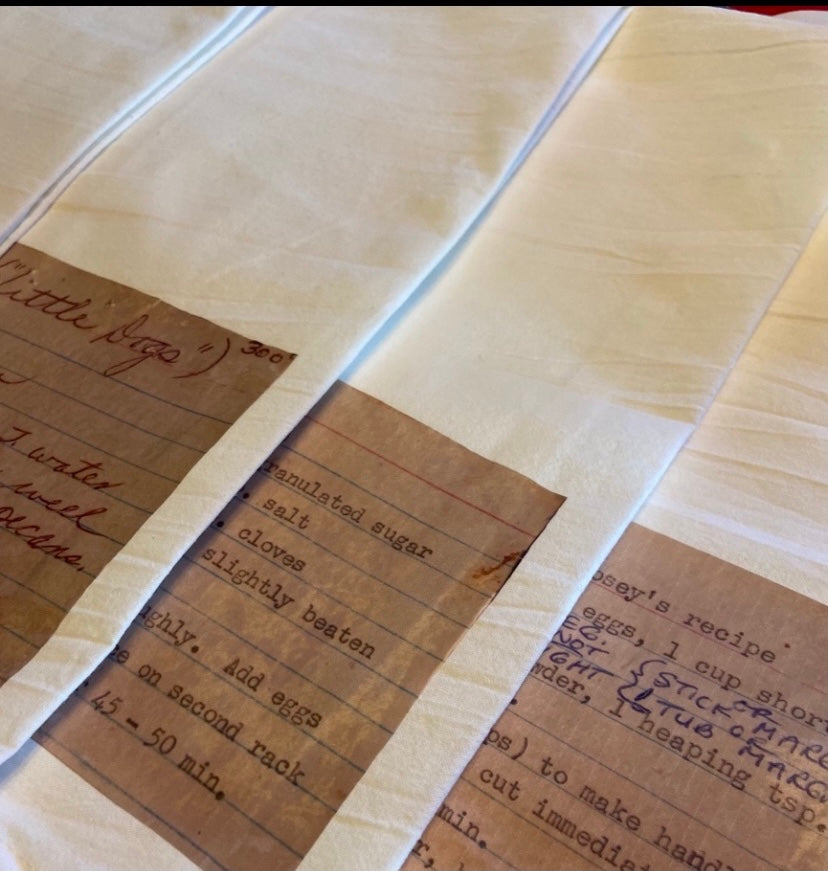 ("Little Dogs") 300°
T water
well
pecans.
ranulated sugar
. salt
. cloves
slightly beaten
ughly. Add eggs
e on second rack
. 45 - 50 min.
osey's recipe
eggs, 1 cup short
EG.
NOT
IGHT { STICK OR
1 TUB OF MARG
MARG
wder, 1 heaping tsp.
ps) to make handl
cut immediat
min.
r,